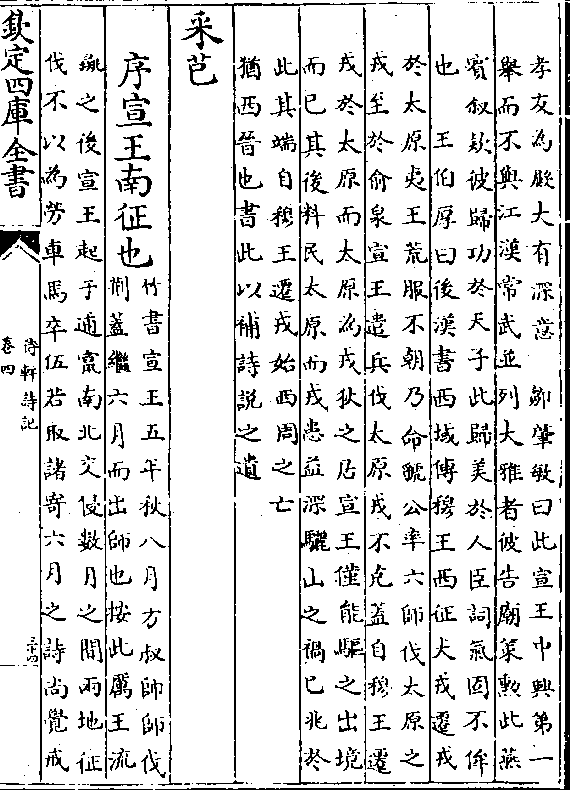 孝友為厥大有深意　鄒肇敏曰此宣王中興第一
舉而不與江漢常武並列大雅者彼告廟策勲此燕
賓叙歟彼歸功於天子此歸美於人臣詞氣固不侔
也　王伯厚曰後漢書西域傳穆王西征犬戎遷戎
於太原夷王荒服不朝乃命虢公率六師伐太原之
戎至於俞泉宣王遣兵伐太原戎不克蓋自穆王遷
戎於太原而太原為戎狄之居宣王僅能驅之出境
而已其後料民太原而戎患益深驪山之禍已兆於
此其端自穆王遷戎始西周之亡
猶西晉也書此以補詩説之遺
采芑
序宣王南征也
竹書宣王五年秋八月方叔帥師伐
荆蓋繼六月而出師也按此厲王流
彘之後宣王起于逋竄南北交侵數月之間兩地征
伐不以為勞車馬卒伍若取諸寄六月之詩尚覺戒
欽定四庫全書
待軒詩記
卷四
三十四